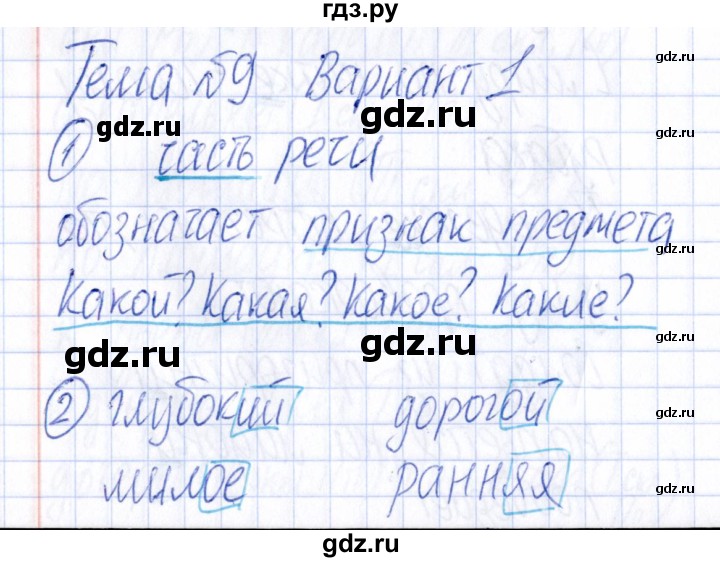 гдз.ру
Тема №9 Вариант 1
① часть речи
обозначает признак предмета
Какой? Какая? Какое? Какие?
② глубокий дорогой
милое ранняя
gdz.ru
gdz.ru
gdz.ru
gdz.ru
gdz.ru
gdz.ru
gdz.ru
gdz.ru
gdz.ru
gdz.ru
gdz.ru
gdz.ru